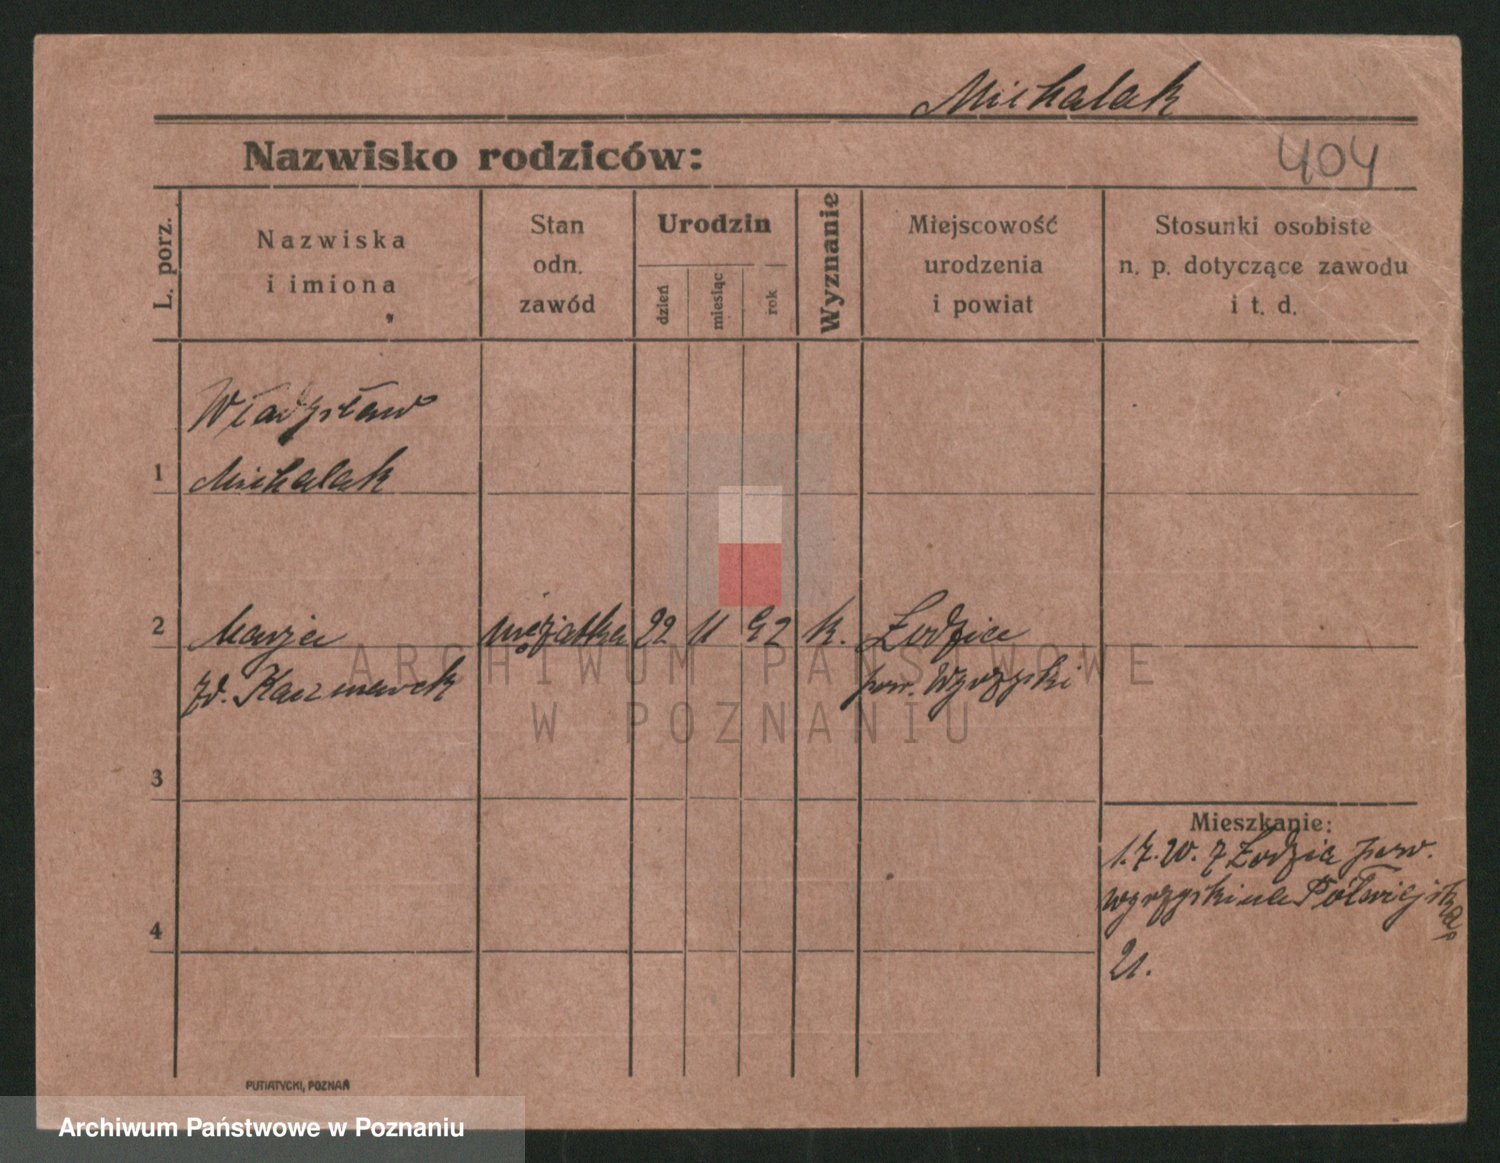 Michalak
Nazwisko rodziców:
404
L. porz.
Nazwiska
i imiona
Stan
odn.
zawód
Urodzin
dzień
miesiąc
rok
Wyznanie
Miejscowość
urodzenia
i powiat
Stosunki osobiste
n. p. dotyczące zawodu
i t. d.
Władysław
1 Michalak
2 Marja mężatka 22 11 92 k. Łodzia
zd. Kaczmarek pow. Wyrzyski
3
Mieszkanie:
1.7.20. z Łodzia pow.
wyrzyski na Półwiejska
4
21.
PUTIATYCKI, POZNAŃ
ARCHIWUM PAŃSTWOWE
W POZNANIU
Archiwum Państwowe w Poznaniu